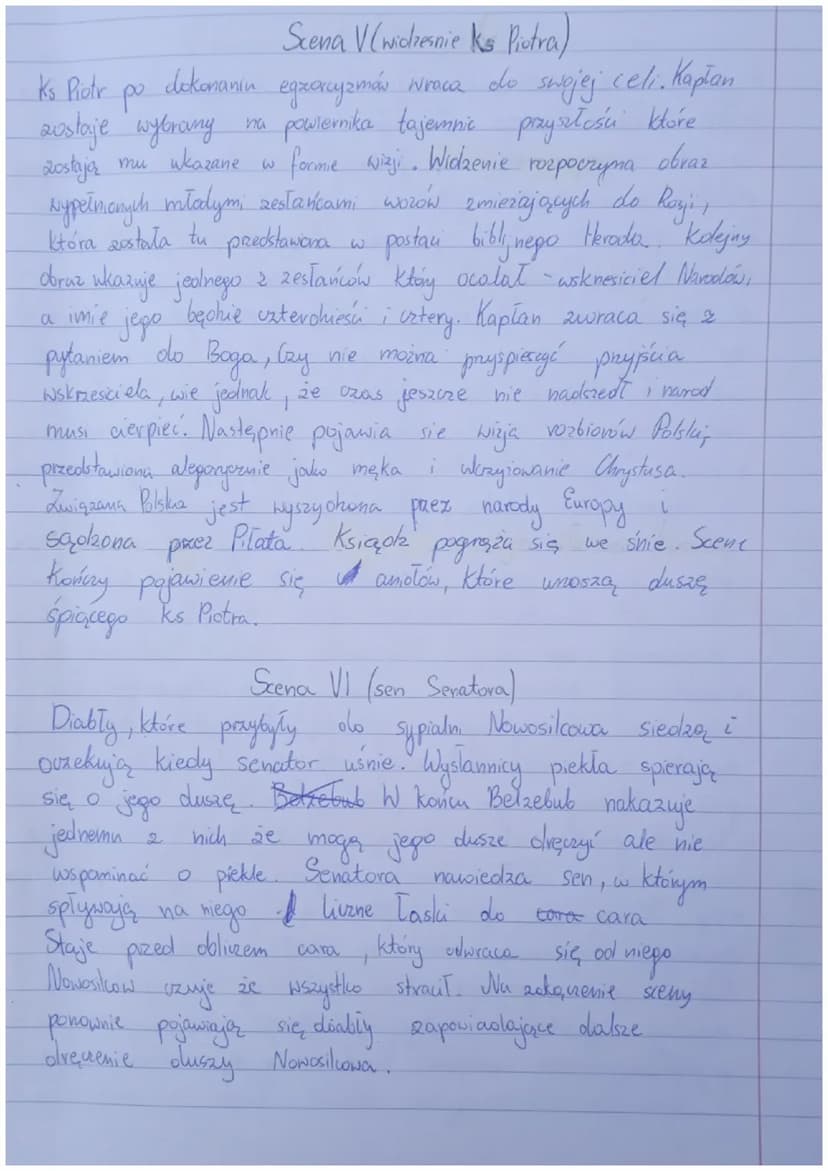 Scena V (widzesnie Ks Piotra)
Ks Piotr po dokonaniu egzorcyzmów wraca do swojej celi. Kapłan
zostaje wybrany na powiernika tajemnic przyszłości które
zostają mu ukazane w formie wizji. Widzenie rozpoczyna obraz
wypełnionych młodymi zesłańcami wozów zmierzających do Rosji,
która została tu przedstawiona w postaci biblijnego Heroda. Kolejny
obraz ukazuje jednego z zesłańców który ocalał - wskrzesiciel Narodów,
a imię jego będzie czterdzieści i cztery. Kapłan zwraca się z
pytaniem do Boga, Czy nie można przyspieszyć przyjścia
wskrzesiciela, wie jednak, że czas jeszcze nie nadszedł i naród
musi cierpieć. Następnie pojawia sie wizja rozbiorów Polski,
przedstawiona alegorycznie jako męka i ukrzyżowanie Chrystusa.
Związana Polska jest wyszydzona przez narody Europy i
sądzona przez Piłata. Ksiądz pogrąża się we śnie. Scenę
Kończy pojawienie się aniołów, które unoszą duszę
śpiącego ks Piotra.
Scena VI (sen Senatora)
Diabły, które przybyły do sypialni Nowosilcowa siedzą i
oczekują kiedy senator uśnie. Wysłannicy piekła spierają
się o jego duszę. Belzebub W końcu Belzebub nakazuje
jednemu z nich że mogą jego dusze dręczyć ale nie
wspominać o piekle. Senatora nawiedza sen, w którym
spływają na niego liczne Łaski do cara cara
Staje przed obliczem cara, który odwraca się od niego
Nowosilcow czuje że wszystko stracił. Na zakączenie sceny
ponownie pojawiają się diabły zapowiadające dalsze
dręczenie duszy Nowosilcowa.